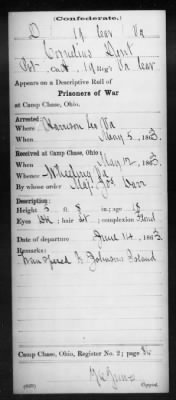 (Confederate.)
D 19 Cav Va
Cornelius Dent
Pvt Co A, 19 Va Cav
Appears on a Descriptive Roll of
Prisoners of War
at Camp Chase, Ohio.
Arrested:
Where Harrison Co Va
When May 5, 1863.
Received at Camp Chase, Ohio;
When May 12, 1863.
Whence Wheeling Va
By whose order Maj. Jos Darr
Description:
Height 5 ft. 8 in; age 18
Eyes ; hair Lt; complexion Florid
Date of departure June 14, 1863.
Remarks:
Transferred to Johnsons Island
Camp Chase, Ohio, Register No. 2; page
Copyist.